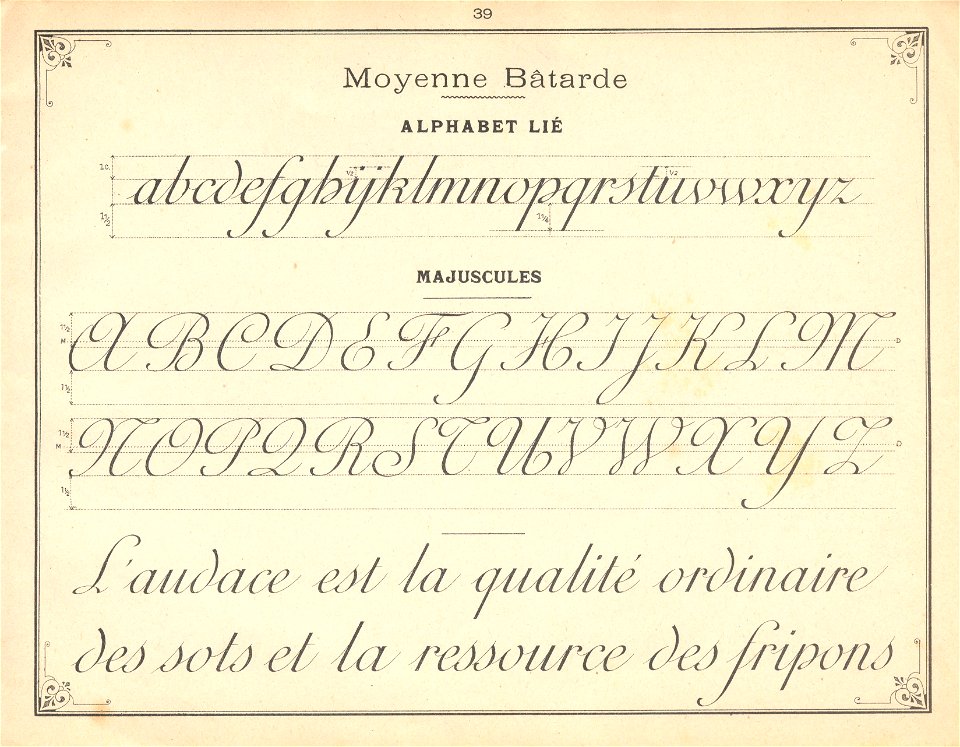 39
Moyenne Bâtarde
ALPHABET LIÉ
abcdefghijklmnopqrstuvwxyz
MAJUSCULES
ABCDEFGHIJKLM
NOPQRSTUVWXYZ
L'audace est la qualité ordinaire
des sots et la ressource des fripons